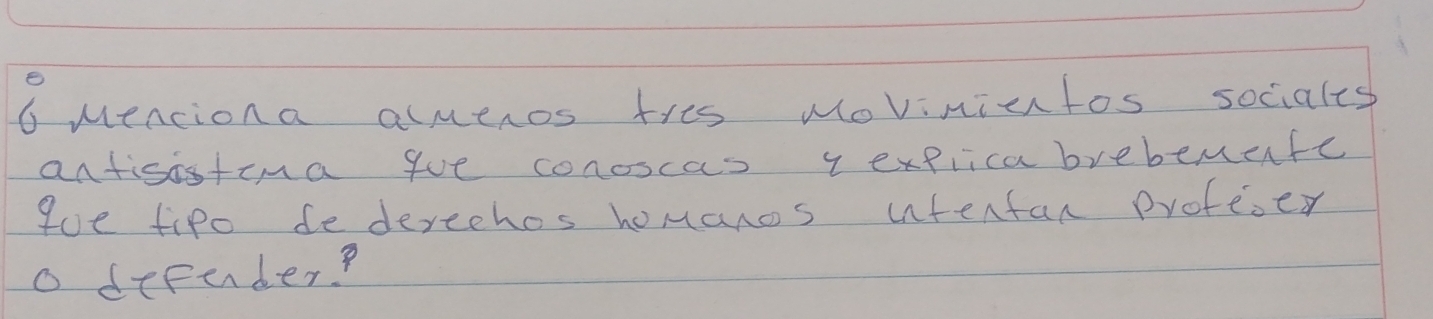 ¿ Menciona almenos tres Movimientos sociales
antisistema que conoscas y explica brebemente
que tipo de derechos homanos intentan proteger
o defender?